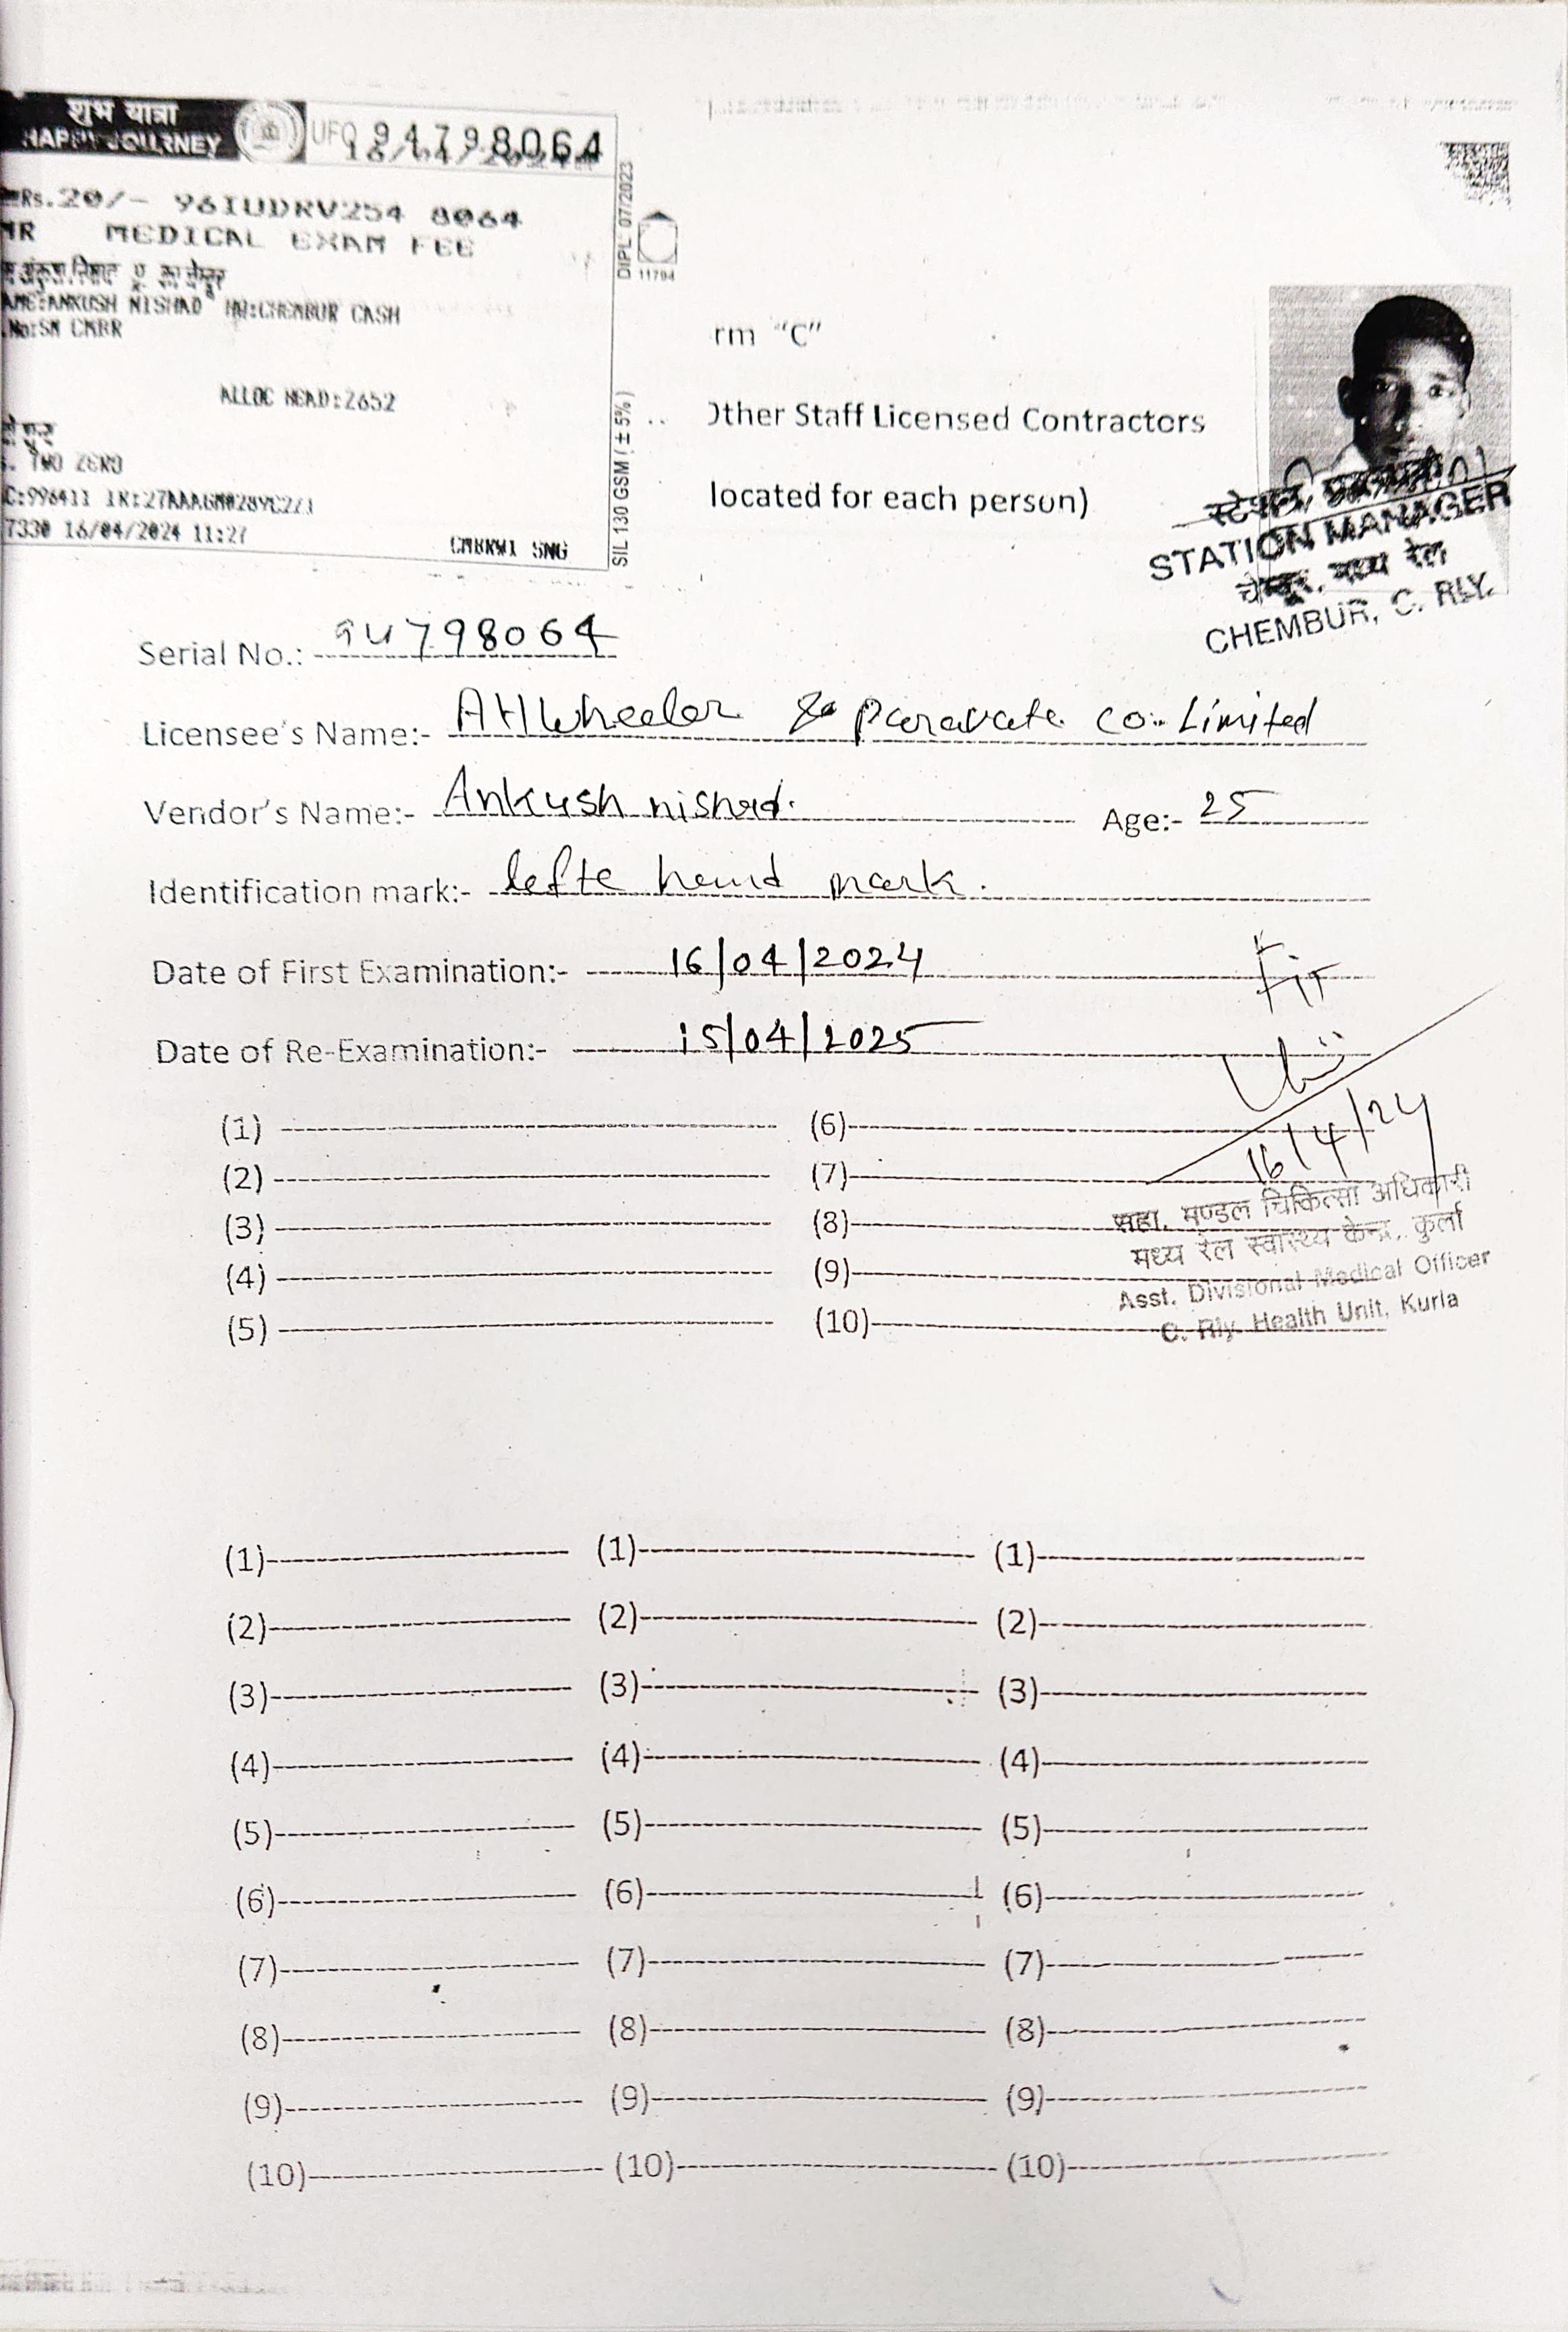 शुभ यात्रा
HAPPY JOURNEY
UFQ 94798064
16/04/2024
Rs.20/- 96IUDRV254 8064
MR MEDICAL EXAM FEE
AME:ANKUSH NISHAD HQ:CHEMBUR CASH
.No:SM CMBR
ALLOC HEAD:2652
. TWO ZERO
7330 16/04/2024 11:27
CMBKW1 SNG
DIPL 07/2023
11794
SIL 130 GSM (± 5%)
rm "C"
Other Staff Licensed Contractors
located for each person)
STATION MANAGER
CHEMBUR, C. RLY.
Serial No.: 94798064
Licensee's Name:- AHWheeler & Paravate co.. Limited
Vendor's Name:- Ankush nishad. Age:- 25
Identification mark:- lefte hand mark.
Date of First Examination:- 16/04/2024
Fit
Date of Re-Examination:- 15/04/2025
(1) (6)
16/4/24
(2) (7)
(3) (8)
(4) (9)
(5) (10)
सहा. मण्डल चिकित्सा अधिकारी
मध्य रेल स्वास्थ्य केन्द्र, कुर्ला
Asst. Divisional Medical Officer
C. Rly. Health Unit, Kurla
(1) (1) (1)
(2) (2) (2)
(3) (3) (3)
(4) (4) (4)
(5) (5) (5)
(6) (6) (6)
(7) (7) (7)
(8) (8) (8)
(9) (9) (9)
(10) (10) (10)